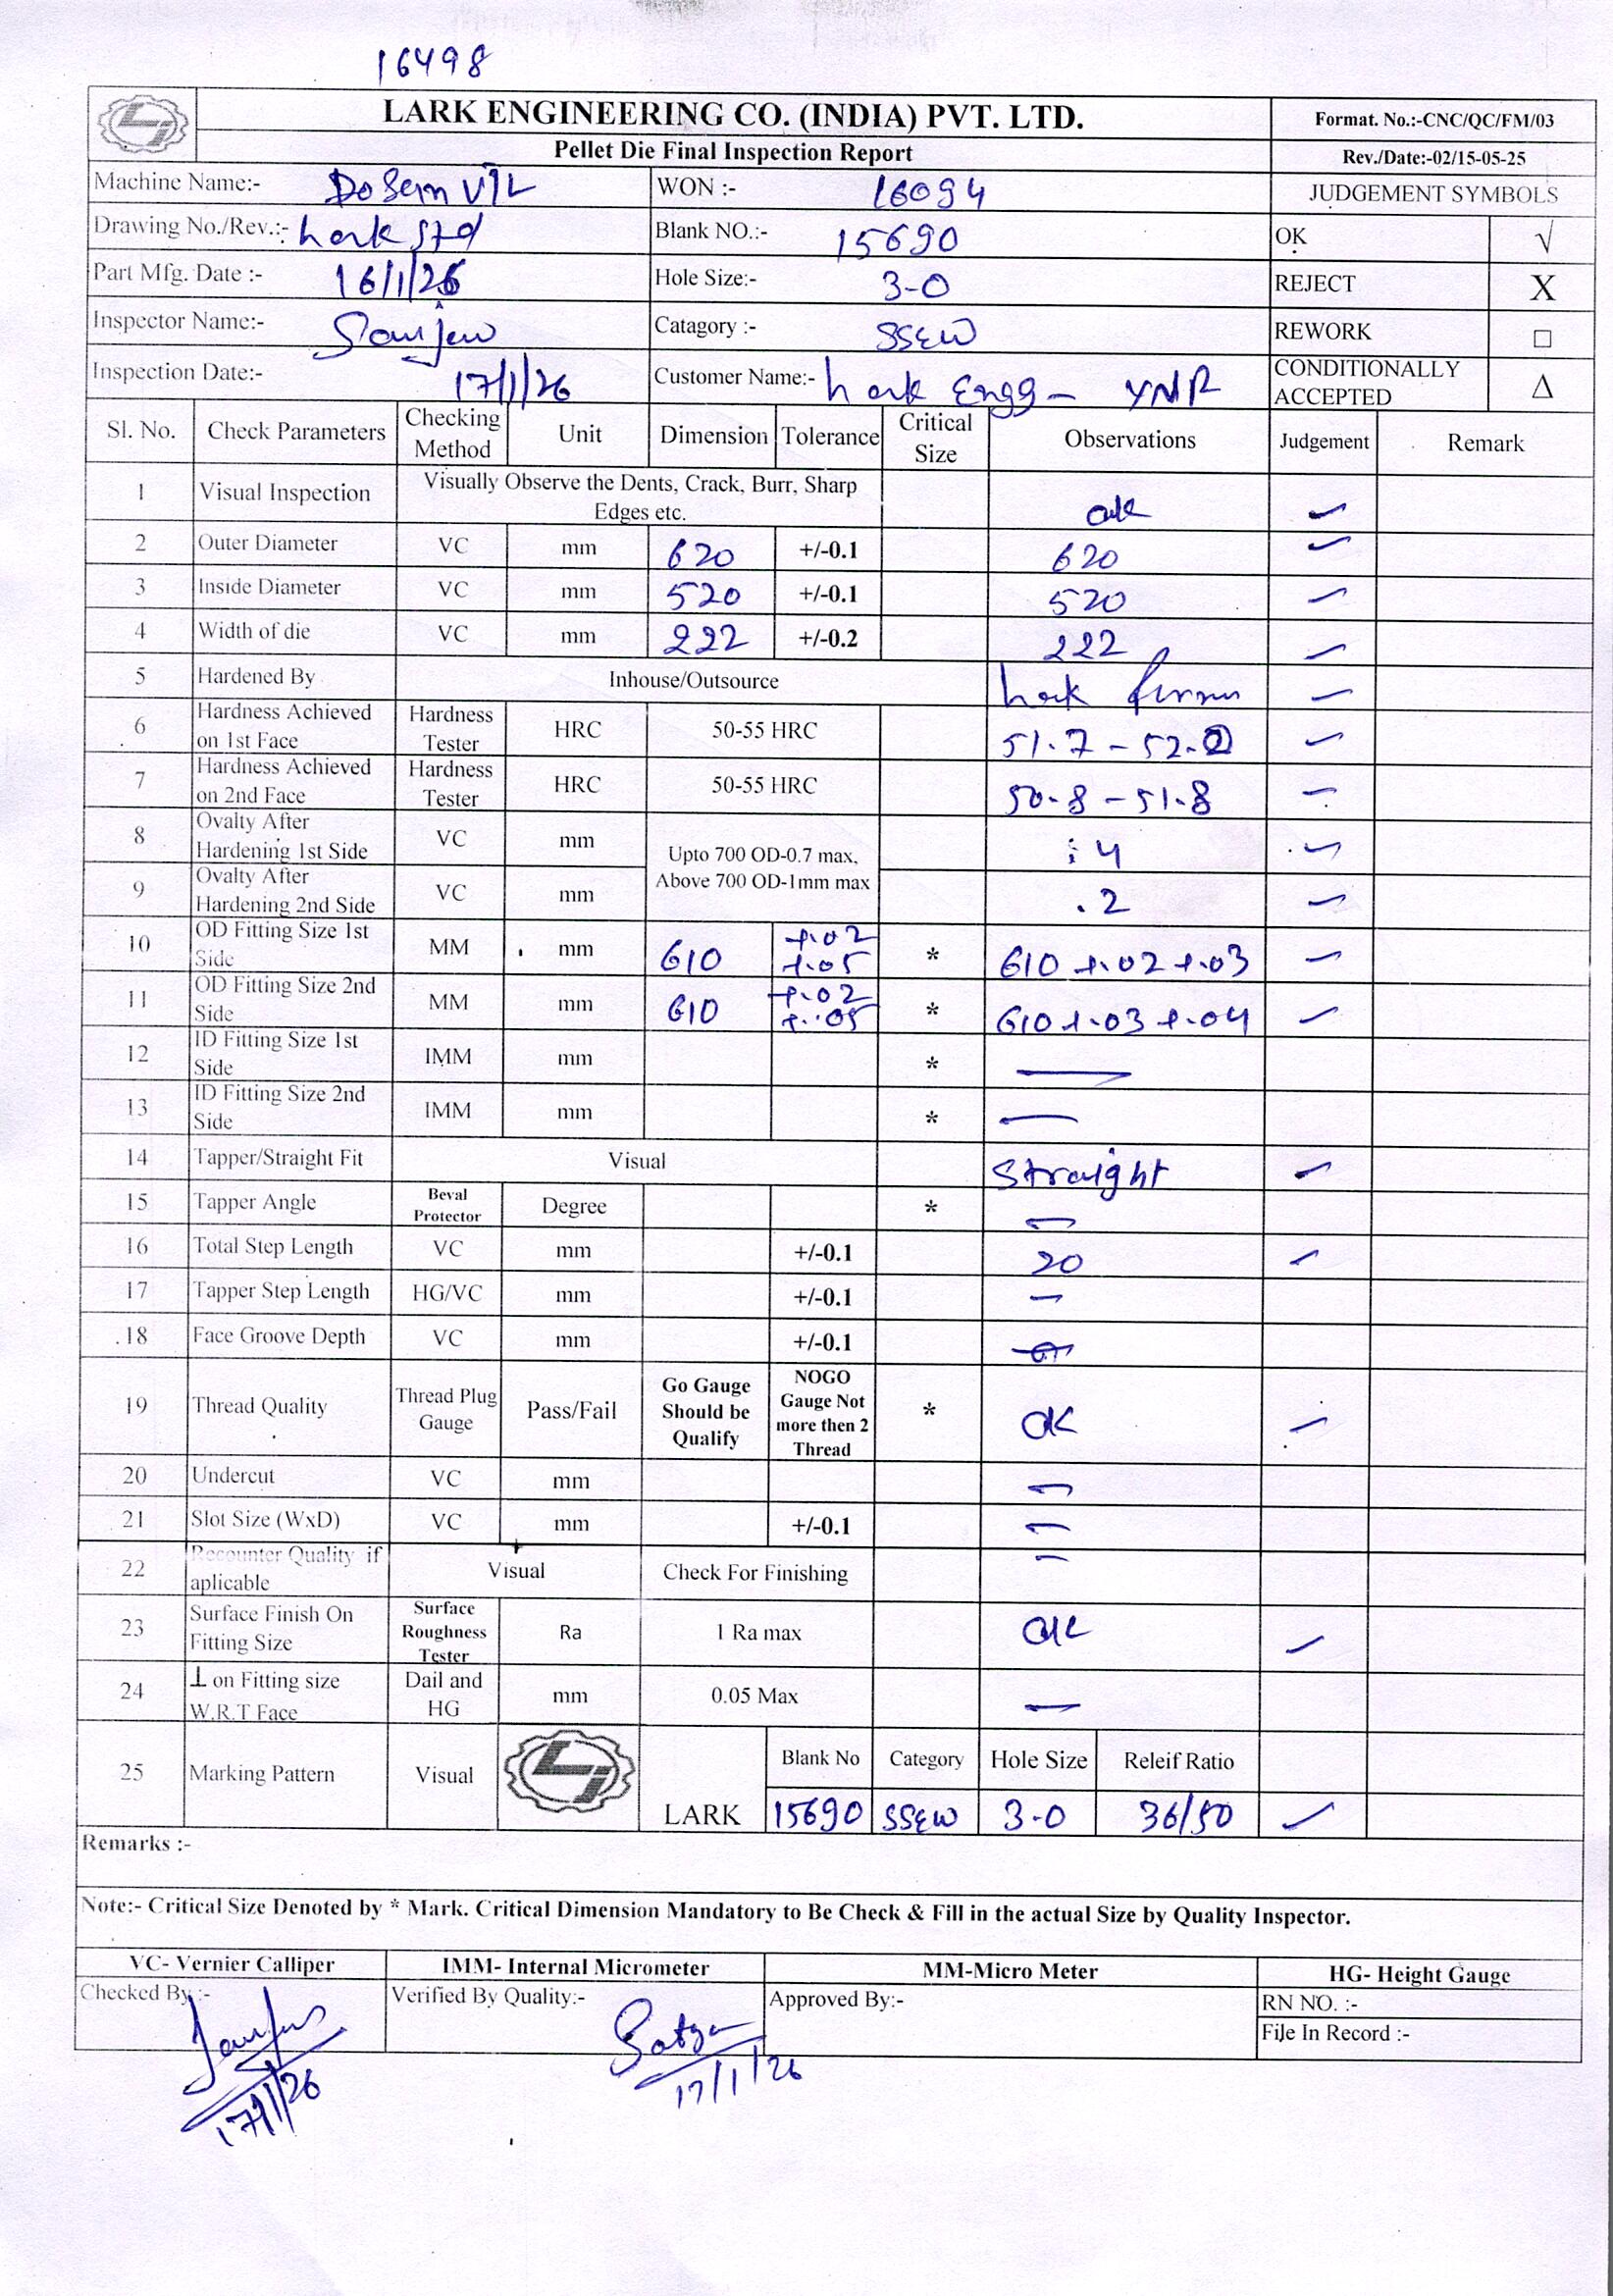 16498
LARK ENGINEERING CO. (INDIA) PVT. LTD.
Format. No.:-CNC/QC/FM/03
Pellet Die Final Inspection Report
Rev./Date:-02/15-05-25
Machine Name:- WON :- 16094 JUDGEMENT SYMBOLS
Drawing No./Rev.:- Lark Std Blank NO.:- 15690 OK √
Part Mfg. Date :- 16/1/26 Hole Size:- 3-0 REJECT X
Inspector Name:- Sanjeev Catagory :- SSEW REWORK □
Inspection Date:- 17/1/26 Customer Name:- Lark Engg - YNR CONDITIONALLY ACCEPTED Δ
Sl. No. Check Parameters Checking Method Unit Dimension Tolerance Critical Size Observations Judgement Remark
1 Visual Inspection Visually Observe the Dents, Crack, Burr, Sharp Edges etc. ok ✓
2 Outer Diameter VC mm 620 +/-0.1 620 ✓
3 Inside Diameter VC mm 520 +/-0.1 520 ✓
4 Width of die VC mm 222 +/-0.2 222 ✓
5 Hardened By Inhouse/Outsource Lark ✓
6 Hardness Achieved on 1st Face Hardness Tester HRC 50-55 HRC 51.7 - 52.2 ✓
7 Hardness Achieved on 2nd Face Hardness Tester HRC 50-55 HRC 50.8 - 51.8 ✓
8 Ovalty After Hardening 1st Side VC mm Upto 700 OD-0.7 max, Above 700 OD-1mm max .4 ✓
9 Ovalty After Hardening 2nd Side VC mm .2 ✓
10 OD Fitting Size 1st Side MM mm 610 +.02 +.05 * 610 +.02 +.03 ✓
11 OD Fitting Size 2nd Side MM mm 610 +.02 +.05 * 610 +.03 +.04 ✓
12 ID Fitting Size 1st Side IMM mm * —
13 ID Fitting Size 2nd Side IMM mm * —
14 Tapper/Straight Fit Visual Straight ✓
15 Tapper Angle Beval Protector Degree * —
16 Total Step Length VC mm +/-0.1 20 ✓
17 Tapper Step Length HG/VC mm +/-0.1 —
18 Face Groove Depth VC mm +/-0.1 —
19 Thread Quality Thread Plug Gauge Pass/Fail Go Gauge Should be Qualify NOGO Gauge Not more then 2 Thread * OK ✓
20 Undercut VC mm —
21 Slot Size (WxD) VC mm +/-0.1 —
22 Recounter Quality if aplicable Visual Check For Finishing —
23 Surface Finish On Fitting Size Surface Roughness Tester Ra 1 Ra max OK ✓
24 ⊥ on Fitting size W.R.T Face Dail and HG mm 0.05 Max —
25 Marking Pattern Visual LARK Blank No Category Hole Size Releif Ratio
15690 SSEW 3-0 36/50 ✓
Remarks :-
Note:- Critical Size Denoted by * Mark. Critical Dimension Mandatory to Be Check & Fill in the actual Size by Quality Inspector.
VC- Vernier Calliper IMM- Internal Micrometer MM-Micro Meter HG- Height Gauge
Checked By :- Verified By Quality:- Approved By:- RN NO. :-
File In Record :-
17/1/26 17/1/26